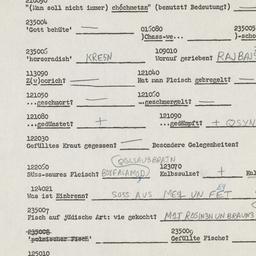 "(Man soll nicht immer) chóchmetzn" (benutzt? Bedeutung?)
235004
'Gott behüte'
016080
)Chass-ve...
235005
235006
'horseradish' KREN
109010
Worauf gerieben?
113090
121040
Hat man Fleisch gebregelt?
121050
...geschmort?
121060
...geschnergelt?
121080
...gedünstet? +
121090
...gedämpft? +
122030
Gefülltes Kraut gegessen?
Besondere Gelegenheiten?
122060
Süss-saures Fleisch?
123070
Kalbssulze? +
124021
Was ist Einbrenn? SOSS AUS MEHL UN FET
235007
Fisch auf jüdische Art: wie gekocht? MIT ROSINEN UN
235008
'polnischer Fisch'
235009
Gefüllte Fische?
125010